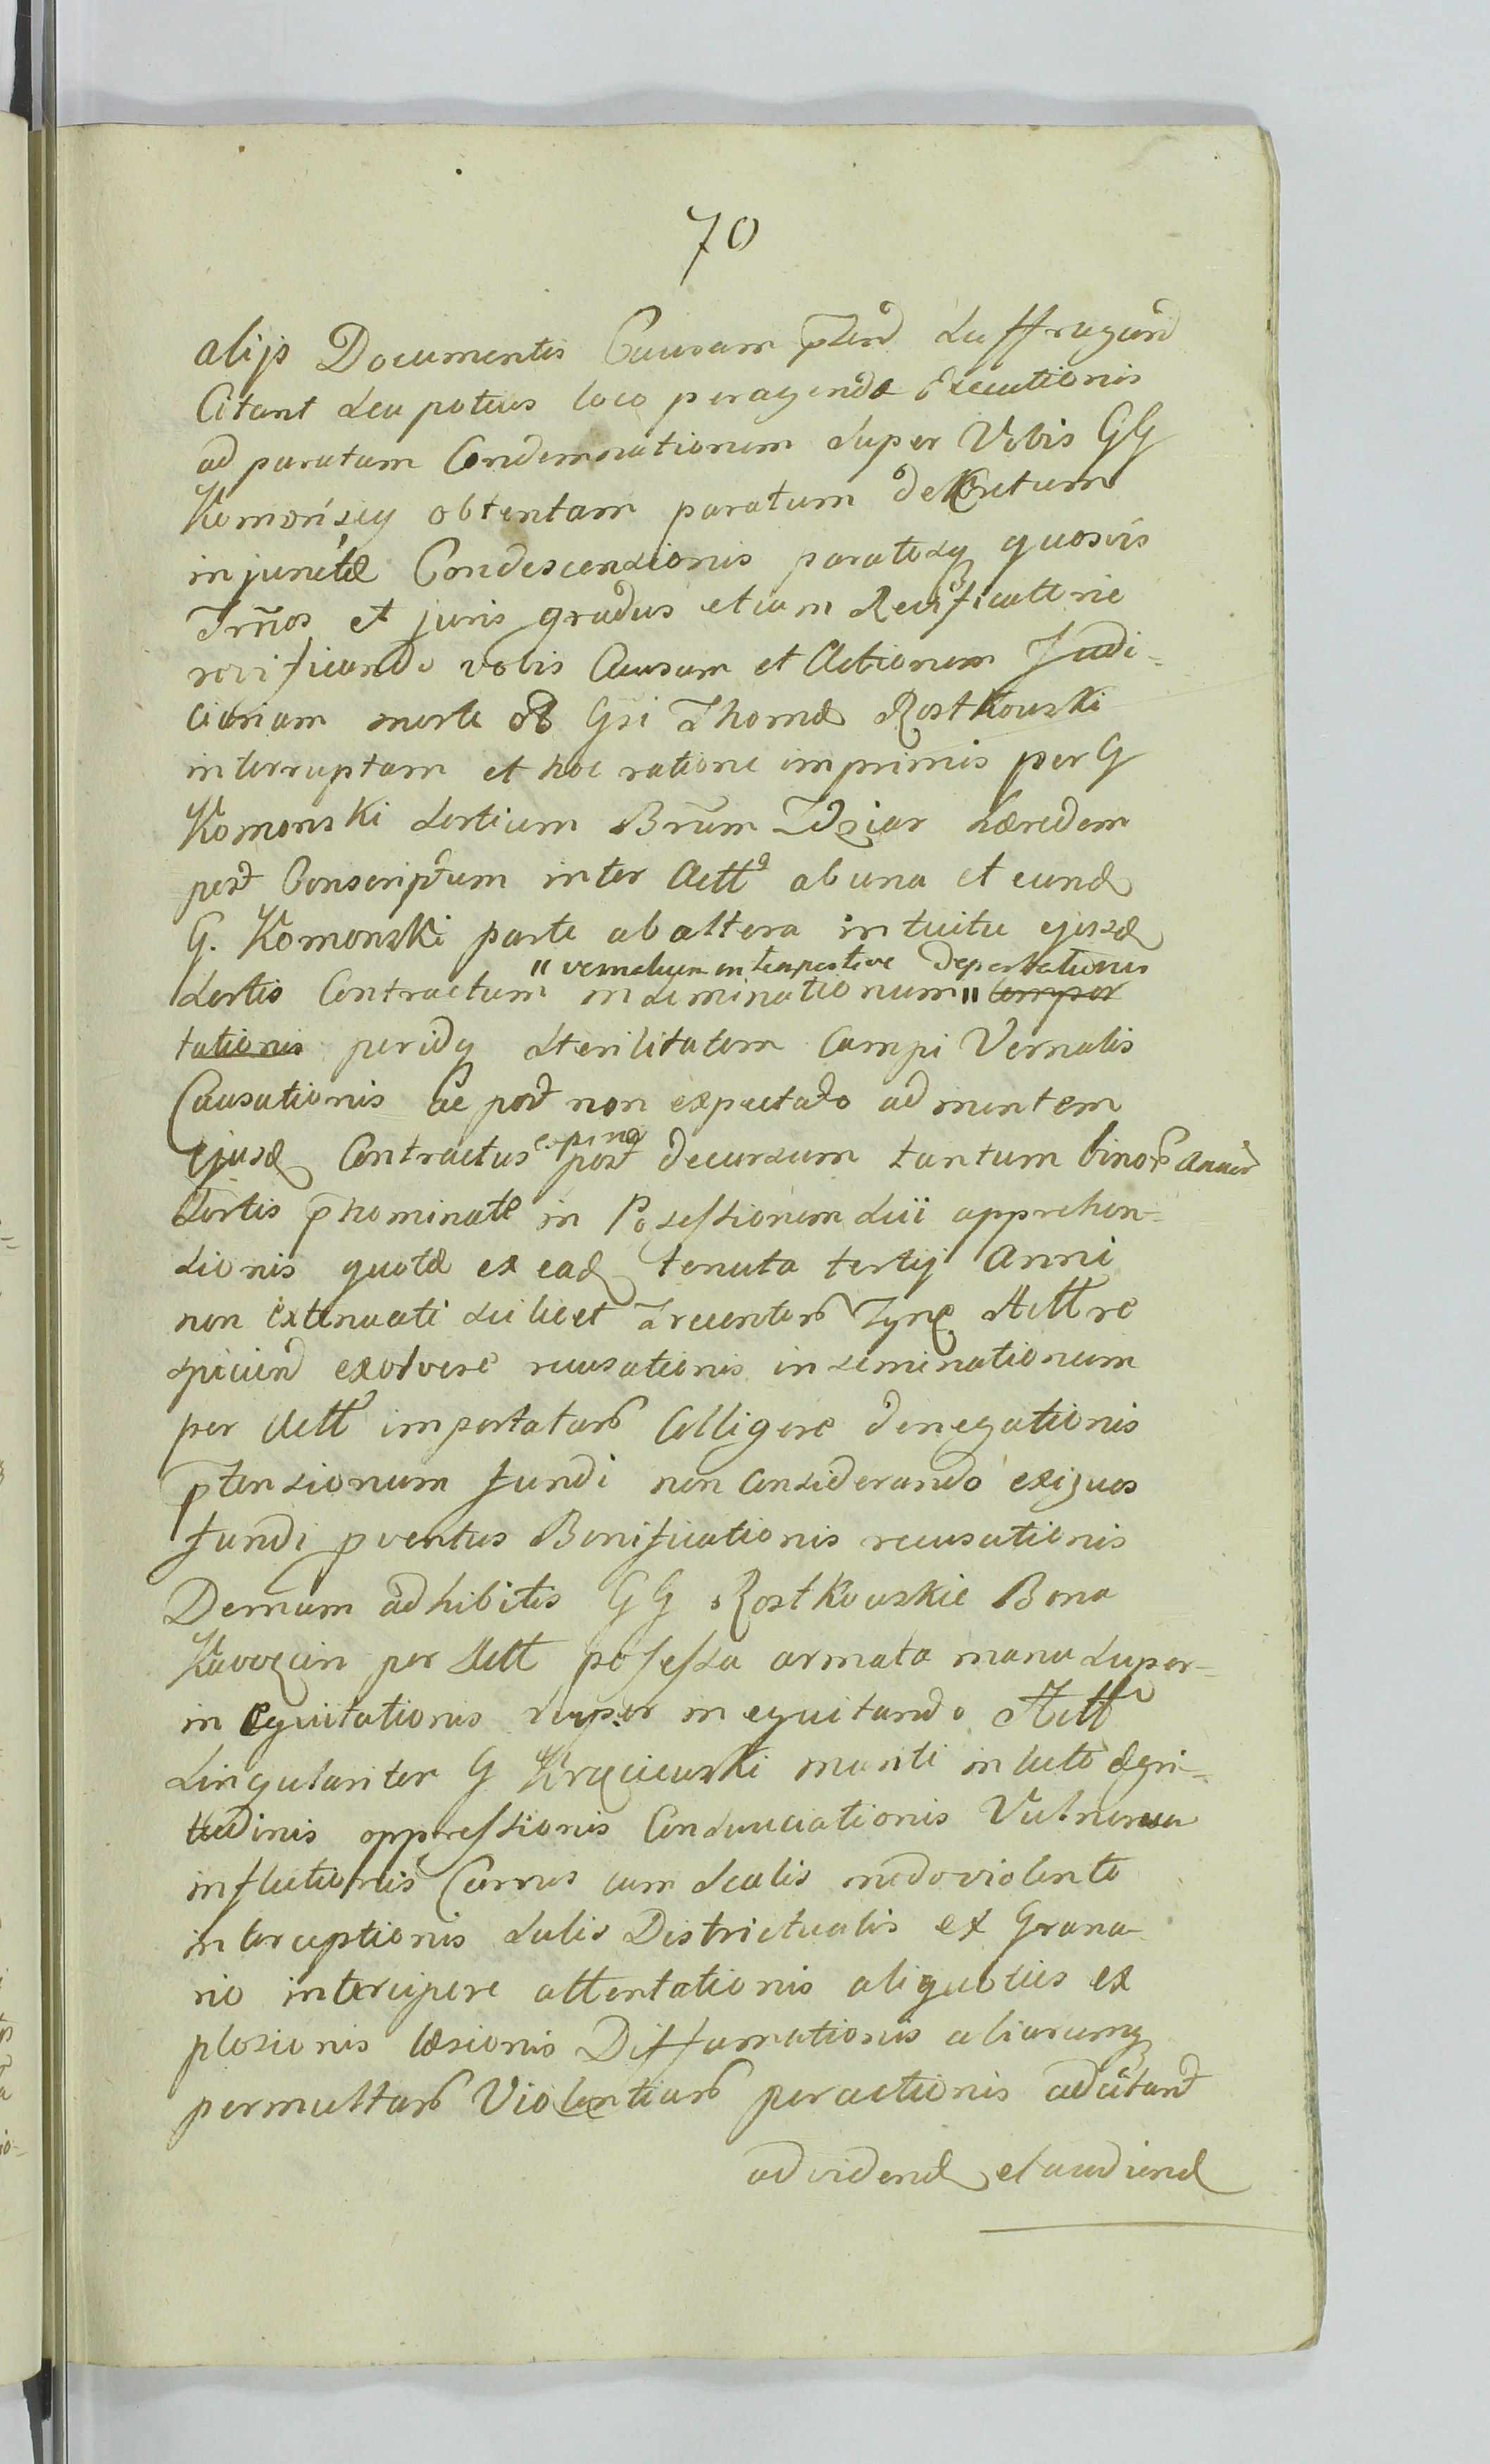 70
alijs Documentis Causam p̃tend Suffragand
Citant seu potius loco peragendæ Executionis
ad paratam Condemnationem super Vobis GG
Komońscy obtentam paratum deCretum
injunctæ Condescensionis paratosq quosvis
Trños et juris gradus etiam Revificatorie
revificando vobis Causam et Actionem Judi-
ciariam morte ol Gsi Thomæ Rostkowski
interruptam et hoc ratione imprimis per G
Komonski Sortium Brum Zdziar hæredem
post Conscriptum inter Actt abuna et eund
G. Komonski parte ab altera intuitu ejusd
" vernalium intempestive deportationis
Sortis Contractum inseminationum " Compor
tationis peridq sterilitatem Campi Vernalis
Causationis ac post non expectato ad mentem
ejusd Contractus post decursum tantum binor Annor
Sortis p̃nominatæ in Possessionem sui apprehen-
sionis quotæ ex ead tenuta tertij Anni
non extenuati scilicet Trecentor Tynf Actt re
spiciend exolvere recusationis inseminationum
per Actt importatar Colligere denegationis
p̃tensionum fundi non Considerando exiguos
fundi pventus Bonificationis recusationis
Demum adhibitis GG Rostkowskie Bona
per Actt possessa armata manu super-
in equitationis super in equitando Actt
Singulariter G manti in lecto ægri-
tudinis oppressionis Consauciationis Vulnerum
inflictionis Currus cum Scalis modoviolento
interceptionis Salis Districtualis ex Grana-
rio intercipere attentationis aliquoties ex
plosionis læsionis Diffamationis aliarumq
permultar Violentiar peractionis adcitand
ad videnď et audiend